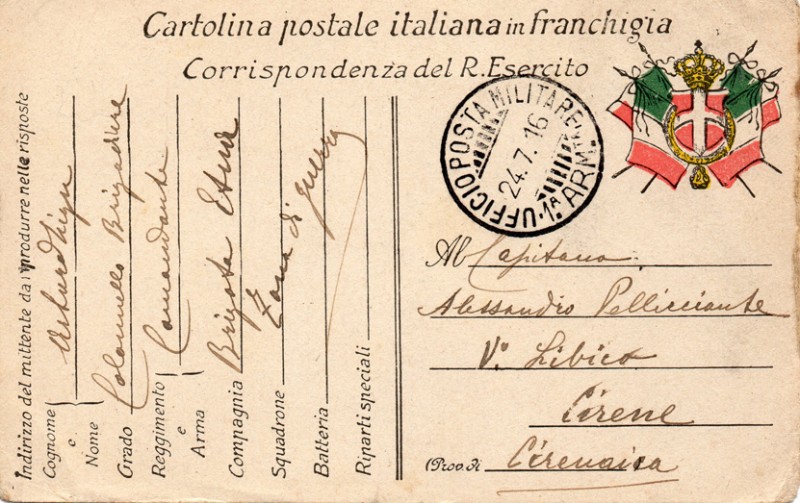 Cartolina postale italiana in franchigia
Corrispondenza del R. Esercito
UFFICIO POSTA MILITARE
1ª ARM.
24.7.16
Indirizzo del mittente da riprodurre nelle risposte
Cognome e Nome
Grado Colonnello Brigadiere
Reggimento e Arma Comandante
Compagnia Brigata Etna
Squadrone Zona di guerra
Batteria
Riparti speciali
Al Capitano
Alessandro Pellicciante
V° Libico
Cirene
(Prov. di Cirenaica